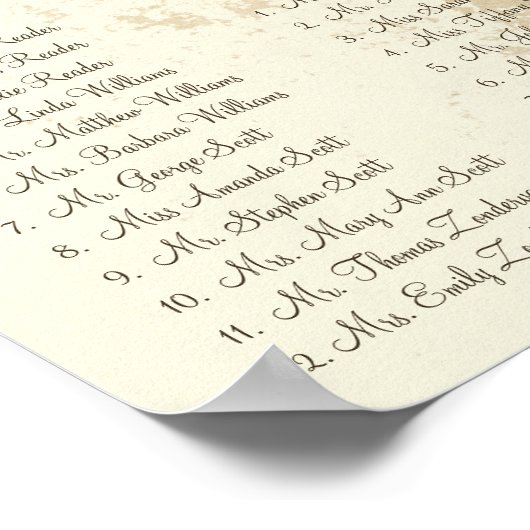 Reader
Reader
Reader
Linda Williams
Matthew Williams
Mrs. Barbara Williams
7. Mr. George Scott
8. Miss Amanda Scott
9. Mr. Stephen Scott
10. Mrs. Mary Ann Scott
11. Mr. Thomas
2. Mrs. Emily
1.
2. Mr.
3. Miss
4. Miss
5. Mr.
6.